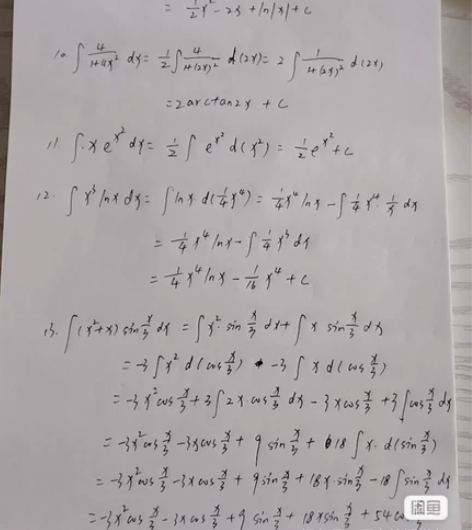 = 1/2 x² - 2x + ln|x| + C
10. ∫ 4/(1+4x²) dx = 1/2 ∫ 4/(1+(2x)²) d(2x) = 2 ∫ 1/(1+(2x)²) d(2x)
= 2arctan2x + C
11. ∫ x e^(x²) dx = 1/2 ∫ e^(x²) d(x²) = 1/2 e^(x²) + C
12. ∫ x³ ln x dx = ∫ ln x d(1/4 x⁴) = 1/4 x⁴ ln x - ∫ 1/4 x⁴ · 1/x dx
= 1/4 x⁴ ln x - ∫ 1/4 x³ dx
= 1/4 x⁴ ln x - 1/16 x⁴ + C
13. ∫ (x²+x) sin x/3 dx = ∫ x² · sin x/3 dx + ∫ x sin x/3 dx
= -3 ∫ x² d(cos x/3) - 3 ∫ x d(cos x/3)
= -3x² cos x/3 + 3 ∫ 2x cos x/3 dx - 3x cos x/3 + 3 ∫ cos x/3 dx
= -3x² cos x/3 - 3x cos x/3 + 9 sin x/3 + 18 ∫ x · d(sin x/3)
= -3x² cos x/3 - 3x cos x/3 + 9 sin x/3 + 18x · sin x/3 - 18 ∫ sin x/3 dx
= -3x² cos x/3 - 3x cos x/3 + 9 sin x/3 + 18x sin x/3 + 54